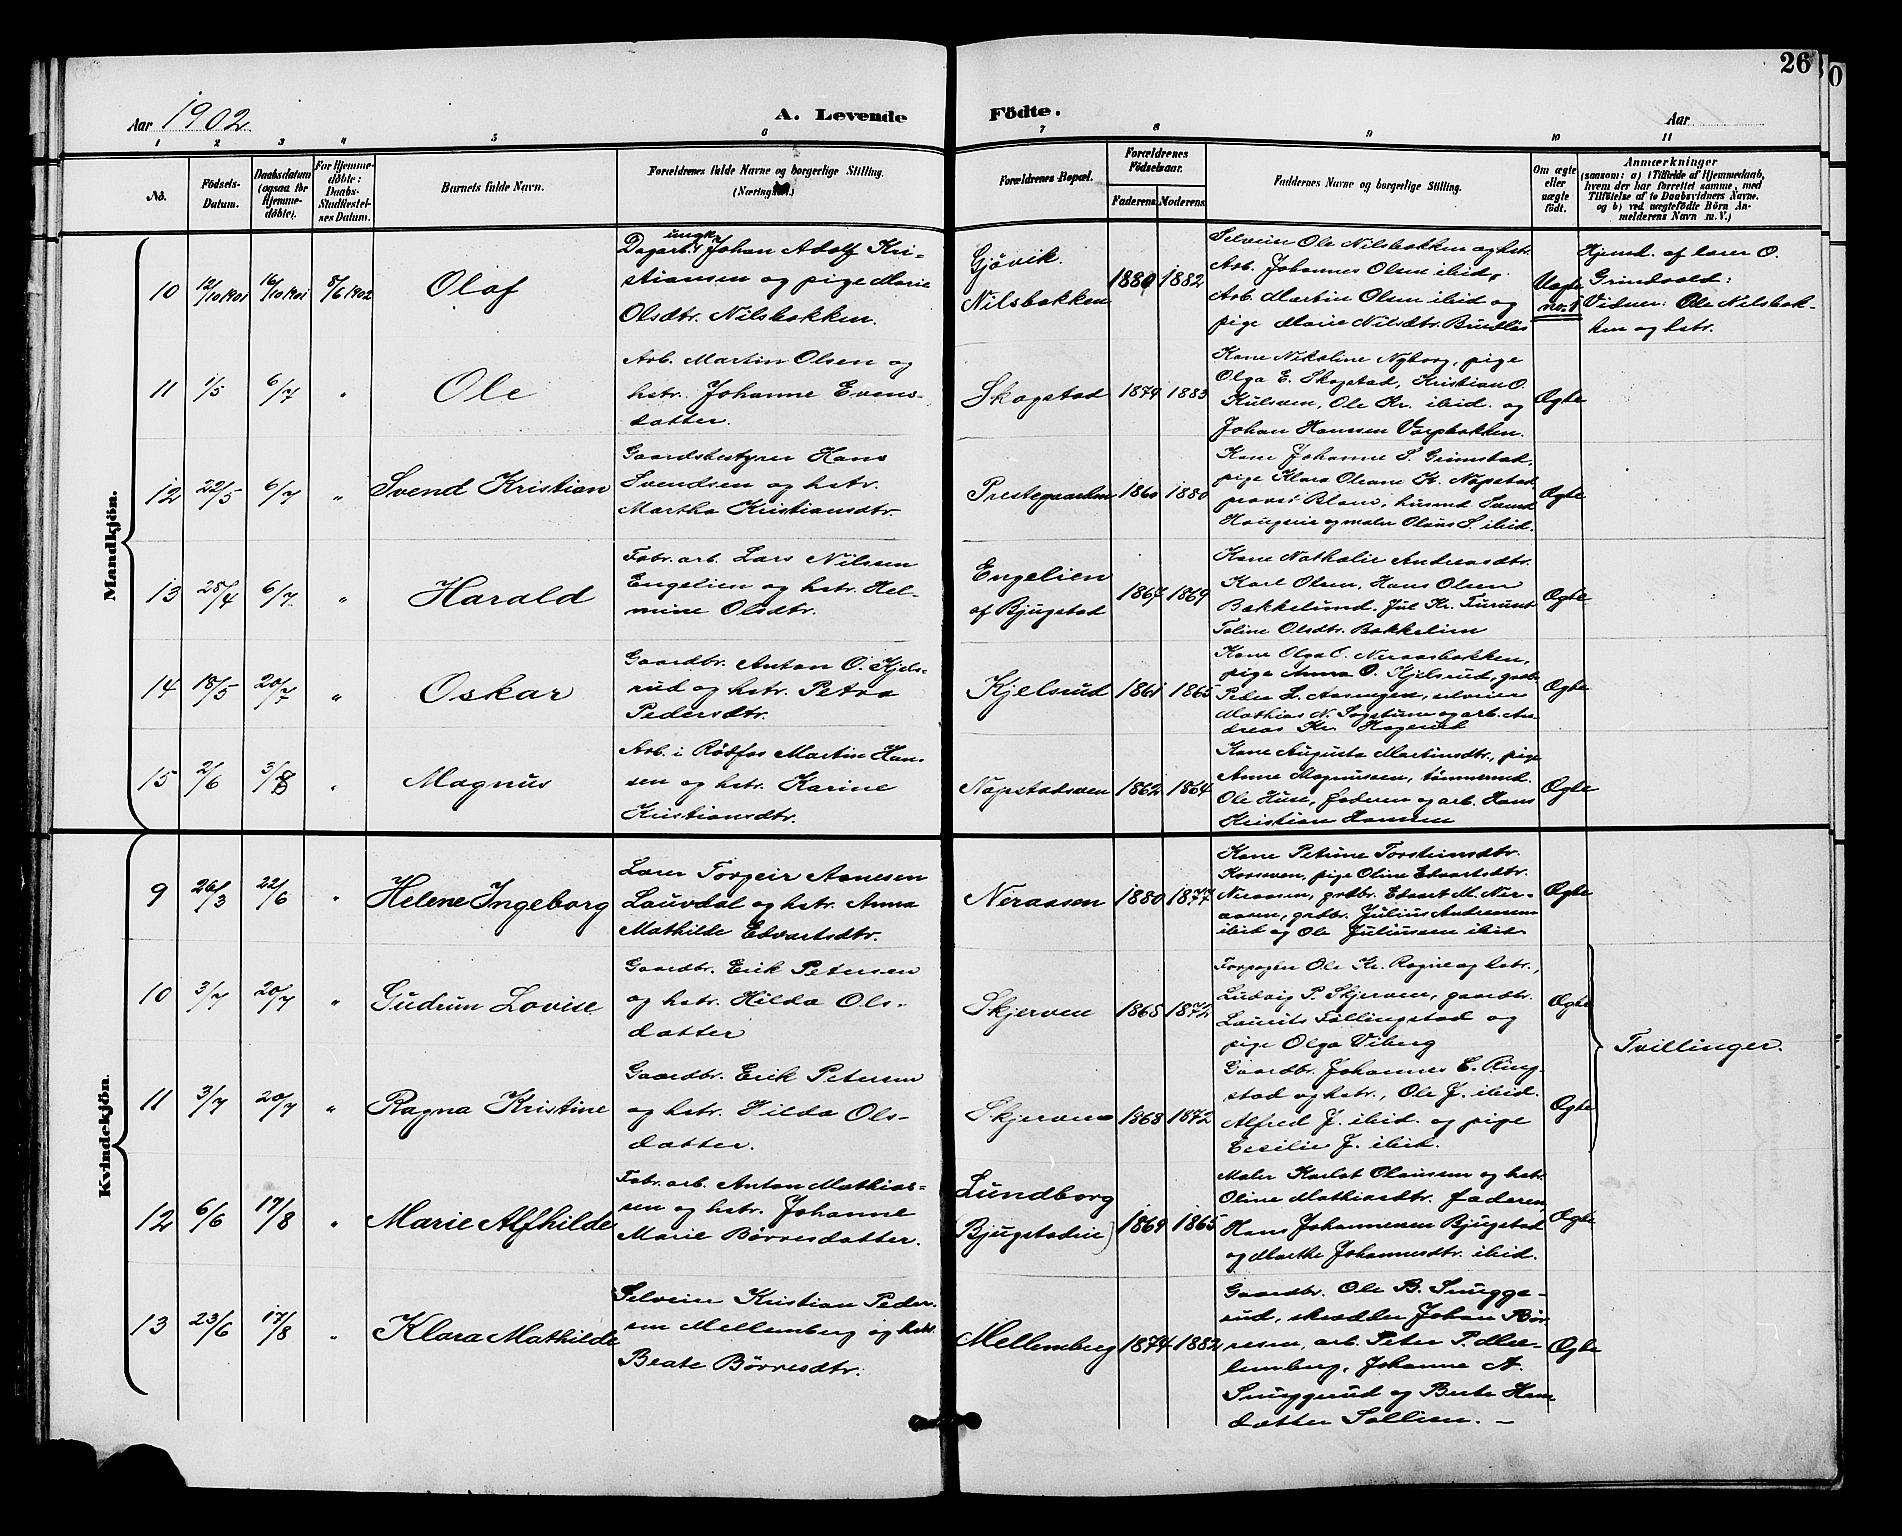 26
0
Aar 1902
A. Levende Födte.
Aar
1 2 3 4 5 6 7 8 9 10 11
No.
Födsels-
Datum.
Daabsdatum
(ogsaa for
Hjemme-
döbte).
For Hjemme-
döbte:
Daabs-
Stadfestel-
ses Datum.
Barnets fulde Navn.
Forældrenes fulde Navne og borgerlige Stilling.
Forældrenes Bopæl.
Forældrenes
Födselsaar.
Faderens
Moderens
Faddernes Navne og borgerlige Stilling.
Om ægte
eller
uægte
födt.
Anmærkninger
(saasom: a) i Tilfælde af Hjemmedaab,
hvem der har forrettet samme, med
Tilföielse af to Daabsvidners Navne,
og b) ved uægtefödte Börn An-
melderens Navn m. V.)
Mandkjön.
10 12/10 1901 16/10 1901 8/6 1902
Olaf
ungk.
Dagarb. Johan Adolf Kri-
stiansen og pige Marie
Olsdtr. Nilsbakken.
Gjøvik.
Nilsbakken
1880 1882
Selveier Ole Nilsbakken og hstr.
Arb. Johannes Olsen ibid,
Arb. Martin Olsen ibid og
pige Marie Nilsdtr.
Uægte
no. 1
Hjemd. af lærer O.
Grindvold:
Vidner: Ole Nilsbak-
ken og hstr.
11 1/5 6/7 "
Ole
Arb. Martin Olsen og
hstr. Johanne Evens-
datter.
Skogstad
1874 1883
Kone Nikoline Nyborg, pige
Olga E. Skogstad, Kristian O.
Kulsveen, Ole Kr. ibid. og
Johan Hanssen Varpbakken.
Ægte
12 22/5 6/7 "
Svend Kristian
Gaardsbestyrer Hans
Svendsen og hstr.
Martha Kristiansdtr.
Prestegaarden
1860 1880
Kone Johanne S. Grimstad,
pige Klara Oleane K. Næpstad
provst Blanc, husmd. Svend
Haugeeie og maler Olaus S. ibid.
Ægte
13 28/4 6/7 "
Harald
Fabr. arb. Lars Nilsen
Engelien og hstr. Hel-
mine Olsdtr.
Engelien
af Bjugstad
1867 1869
Kone Nathalie Andreasdtr.
Karl Olsen, Hans Olsen
Bakkelund, Jul Kr.
Toline Olsdtr. Bakkelien
Ægte
14 18/5 20/7 "
Oskar
Gaardbr. Anton O. Kjels-
rud og hstr. Petra
Pedersdtr.
Kjelsrud
1861 1865
Kone Olga O. Neraasbakken,
pige Anna O. Kjelsrud, gaardbr.
Peder L. Aasengen, selveier
Mathias N. Sogstuen og arb. An-
dreas Kr.
Ægte
15 2/6 3/8 "
Magnus
Arb. i Rødfos Martin Han-
sen og hstr. Karine
Kristiansdtr.
Næpstadsveen
1862 1864
Kone Augusta Martinsdtr., pige
Anne Magnussen, tømmermd.
Ole Huse, faderen og arb. Hans
Kristian Hansen
Ægte
Kvindekjön.
9 26/3 22/6 "
Helene Ingeborg
Lærer Torgeir Aanesen
Lauvdal og hstr. Anna
Mathilde Edvartsdtr.
Neraasen
1880 1877
Kone Petrine Torsteinsdtr.
Korsveen, pige Oline Edvartsdtr.
Neraasen, grdbr. Edvart M. Ner-
aasen, grdbr. Julius Andreasen
ibid og Ole Juliussen ibid.
Ægte
10 3/7 20/7 "
Gudrun Lovise
Gaardbr. Erik Petersen
og hstr. Hilda Ols-
datter
Skjerven
1868 1872
Forpagter Ole Kr. Rogne og hstr.,
Ludvig P. Skjerven, gaardbr.
Laurits Føllingstad og
pige Olga Viberg
Ægte
Tvillinger.
11 3/7 20/7 "
Ragna Kristine
Gaardbr. Erik Petersen
og hstr. Hilda Ols-
datter.
Skjerven
1868 1872
Gaardbr. Johannes E. Ring-
stad og hstr., Ole J. ibid.
Alfred J. ibid. og pige
Cecilie J. ibid.
Ægte
12 6/6 17/8 "
Marie Alfhilde
Fabr. arb. Anton Mathias-
sen og hstr. Johanne
Marie Børresdatter.
Lundborg
Bjugstadeie)
1869 1865
Maler Karlot Olaussen og hstr.
Oline Mathiasdtr. faderen,
Hans Johannesen Bjugstad
og Marthe Johannesdtr. ibid.
Ægte
13 23/6 17/8 "
Klara Mathilde
Selveier Kristian Peder-
sen Mellemberg og hstr.
Beate Børresdtr.
Mellemberg
1874 1882
Gaardbr. Ole B. Snugge-
rud, skrædder Johan Bør-
resen, arb. Peter P. Mel-
lemberg, Johanne A.
Snuggerud og Berte Hans
datter Sollien. –
Ægte